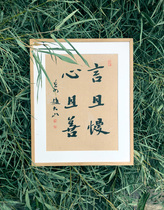 言且慢
心且善